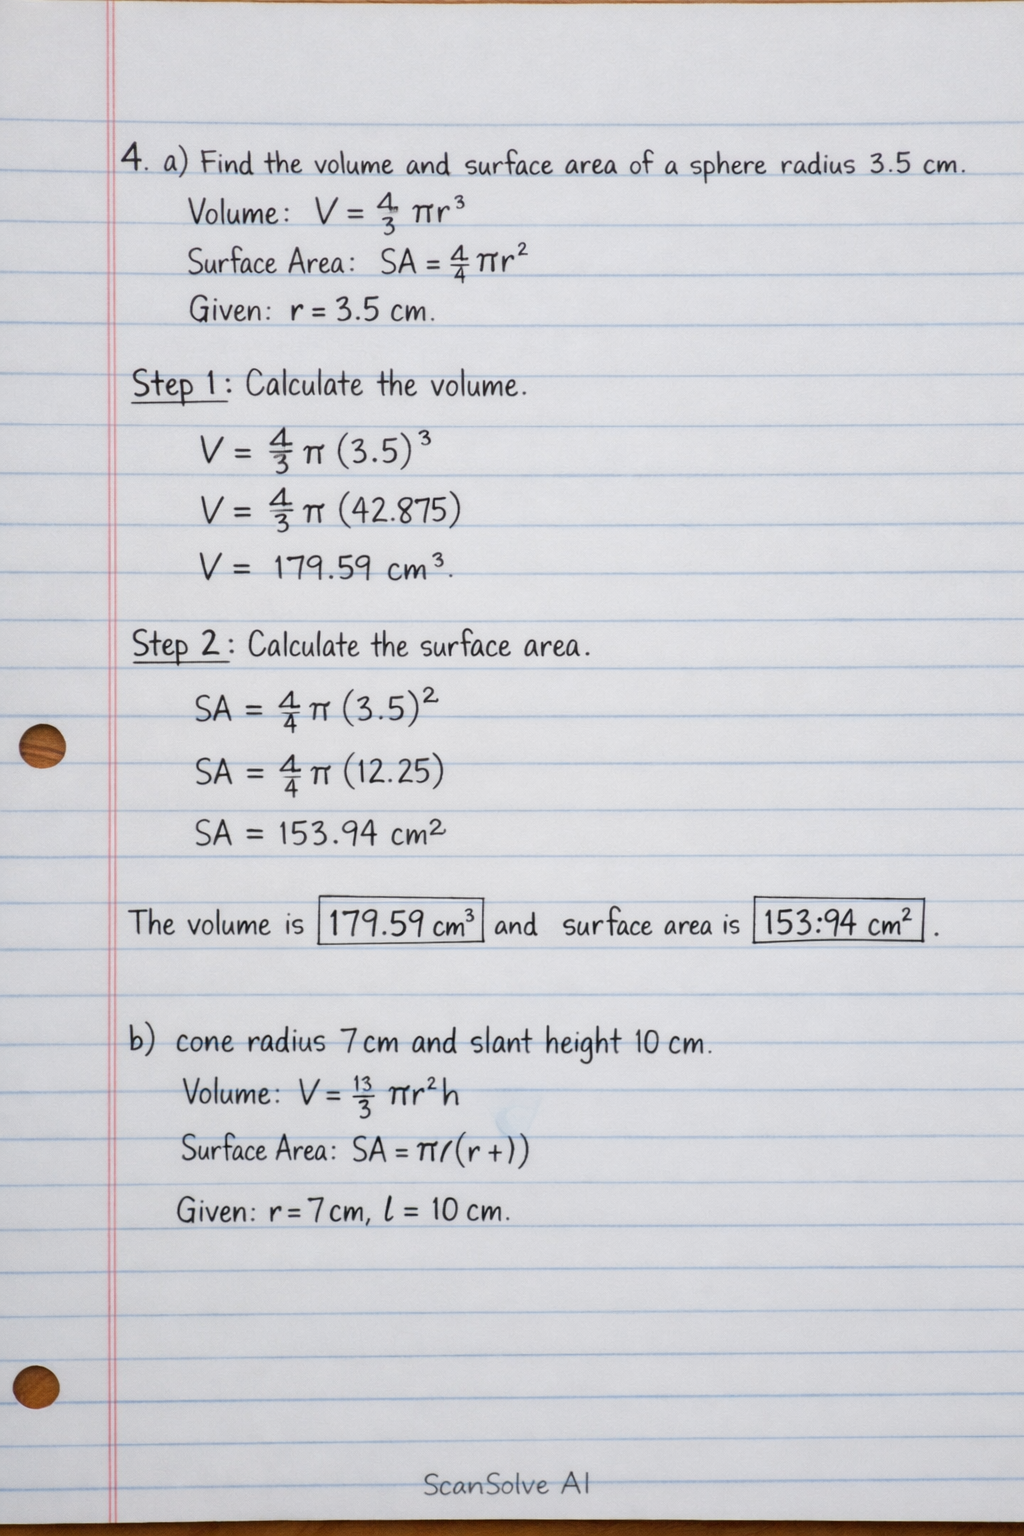 4. a) Find the volume and surface area of a sphere radius 3.5 cm.
Volume: V = 4/3 πr³
Surface Area: SA = 4/4 πr²
Given: r = 3.5 cm.
Step 1: Calculate the volume.
V = 4/3 π (3.5)³
V = 4/3 π (42.875)
V = 179.59 cm³.
Step 2: Calculate the surface area.
SA = 4/4 π (3.5)²
SA = 4/4 π (12.25)
SA = 153.94 cm²
The volume is 179.59 cm³ and surface area is 153:94 cm².
b) cone radius 7 cm and slant height 10 cm.
Volume: V = 13/3 πr²h
Surface Area: SA = π/(r+))
Given: r = 7 cm, l = 10 cm.
ScanSolve AI